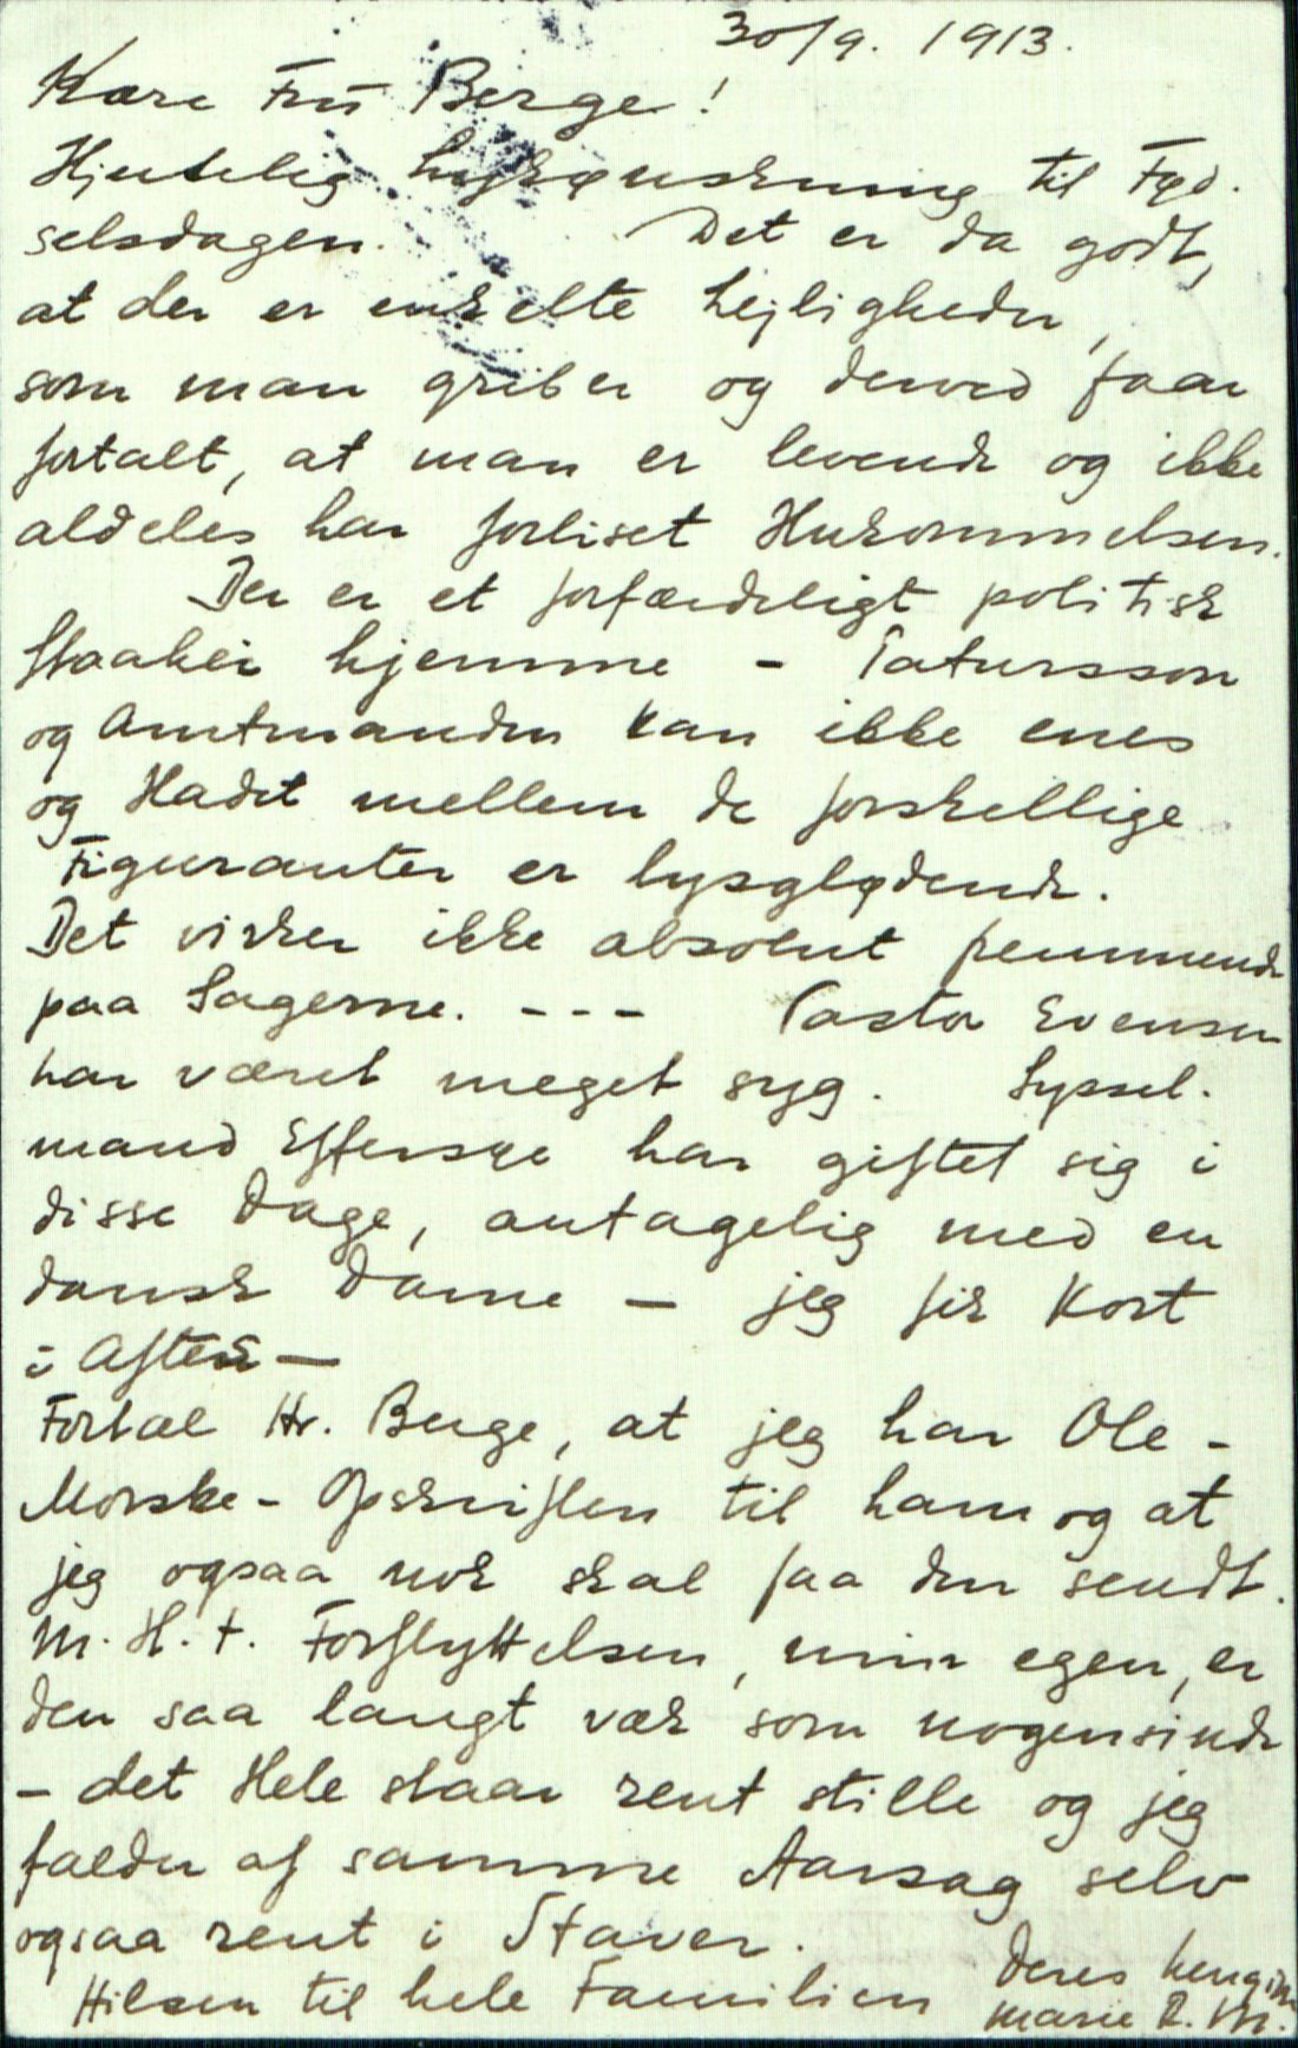 30/9. 1913.
Kære Fru Berge!
Hjertelig Lykønskning til Fød-
selsdagen. Det er da godt,
at der er enkelte Lejligheder,
som man griber og derved faar
fortalt, at man er levende og ikke
aldeles har forliset Hukommelsen.
Der er et forfærdeligt politisk
Staahei hjemme - Patursson
og Amtmanden kan ikke enes
og Hadet mellem de forskellige
Figuranter er lysglødende.
Det virker ikke absolut fremmende
paa Sagerne. --- Pastor Evensen
har været meget syg. Syssel-
mand Effersøe har giftet sig i
disse Dage, antagelig med en
dansk Dame - jeg fik Kort
i Aften -
Fortæl Hr. Berge, at jeg har Ole-
Morske-Opskriften til ham og at
jeg ogsaa nok skal faa den sendt.
M. H. t. Forflyttelsen, min egen, er
den saa langt væk som nogensinde
- det Hele staar rent stille og jeg
falder af samme Aarsag selv
ogsaa rent i Staver.
Hilsen til hele Familien Deres hengivne
Marie R. M.